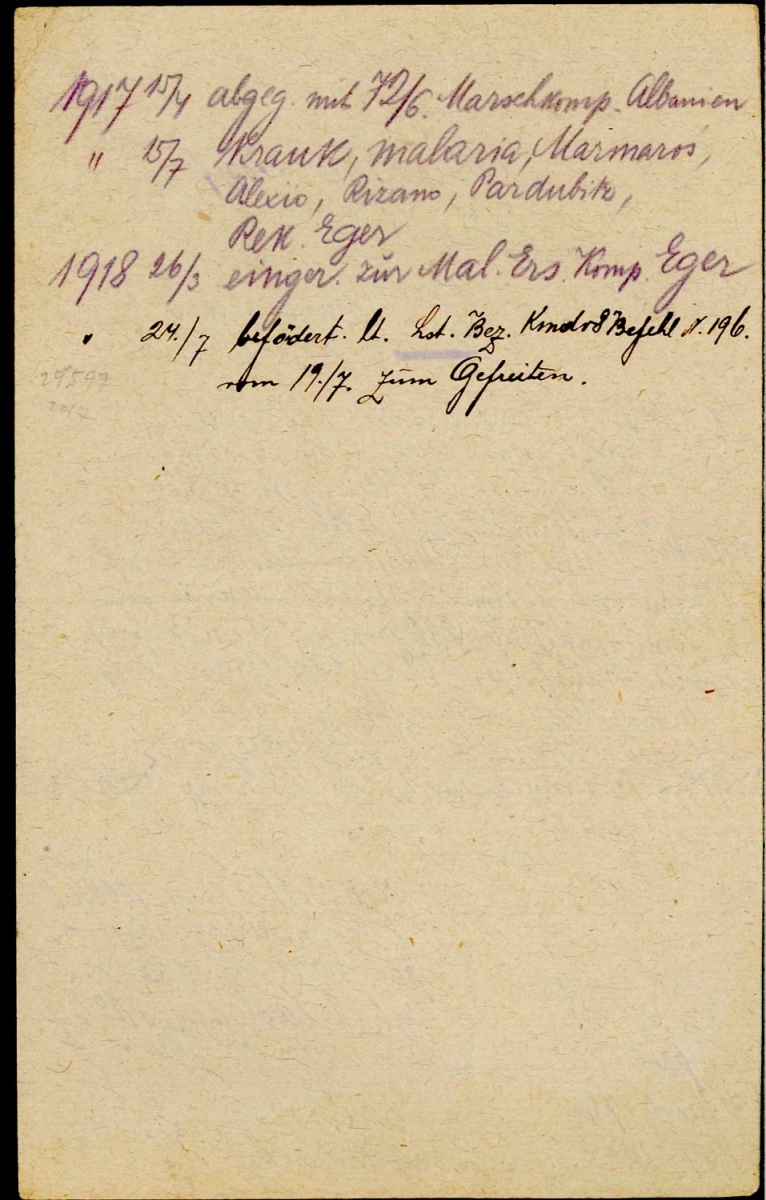 1917 15/4 abgeg. mit 72/6. Marschkomp. Albanien
" 15/7 Krank, Malaria, Marmaros,
Alexio, Rizano, Pardubitz,
Rek. Eger
1918 26/3 einger. zur Mal. Ers. Komp. Eger
" 24./7 befödert. lt. Bez. Kmdos Befehl N. 196.
vom 19./7. zum Gefreiten.